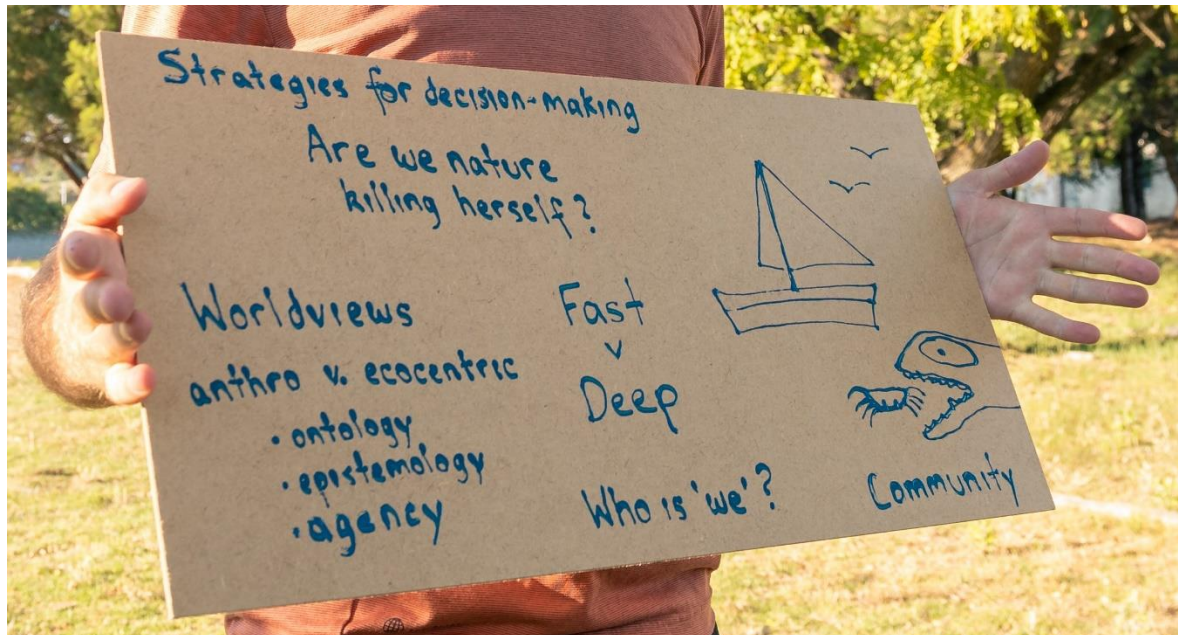 Strategies for decision-making
Are we nature
killing herself?
Worldviews
anthro v. ecocentric
• ontology
• epistemology
• agency
Fast
v
Deep
Who is 'we'?
Community